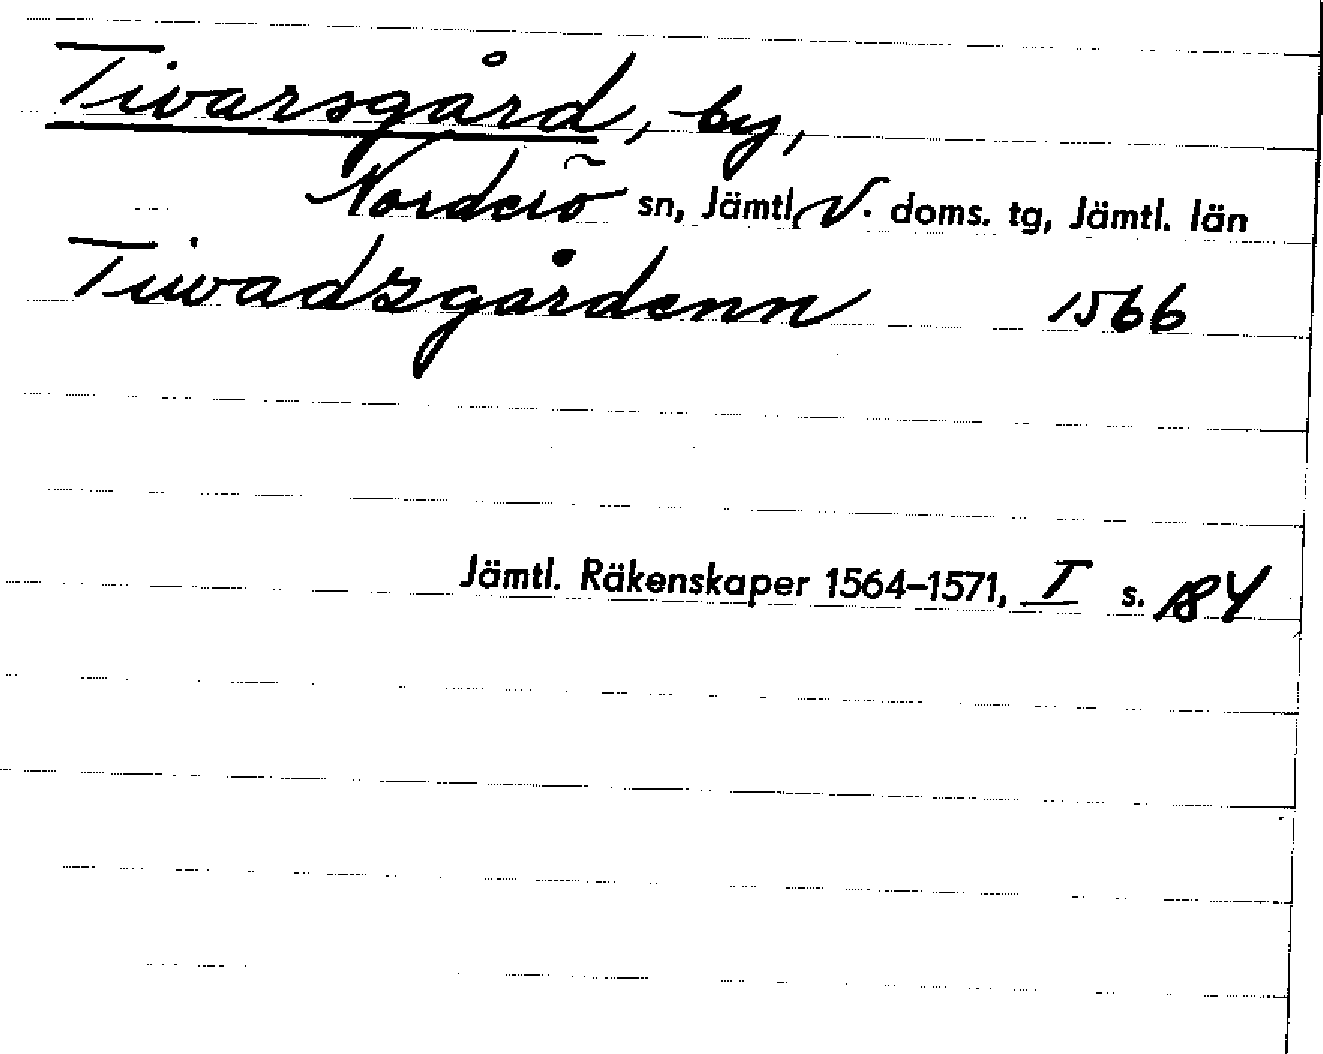 Tivarsgård, by,
Norderö sn, Jämtl. V. doms. tg, Jämtl. län
Tiwadzgårdenn 1566
Jämtl. Räkenskaper 1564–1571, I s. 184